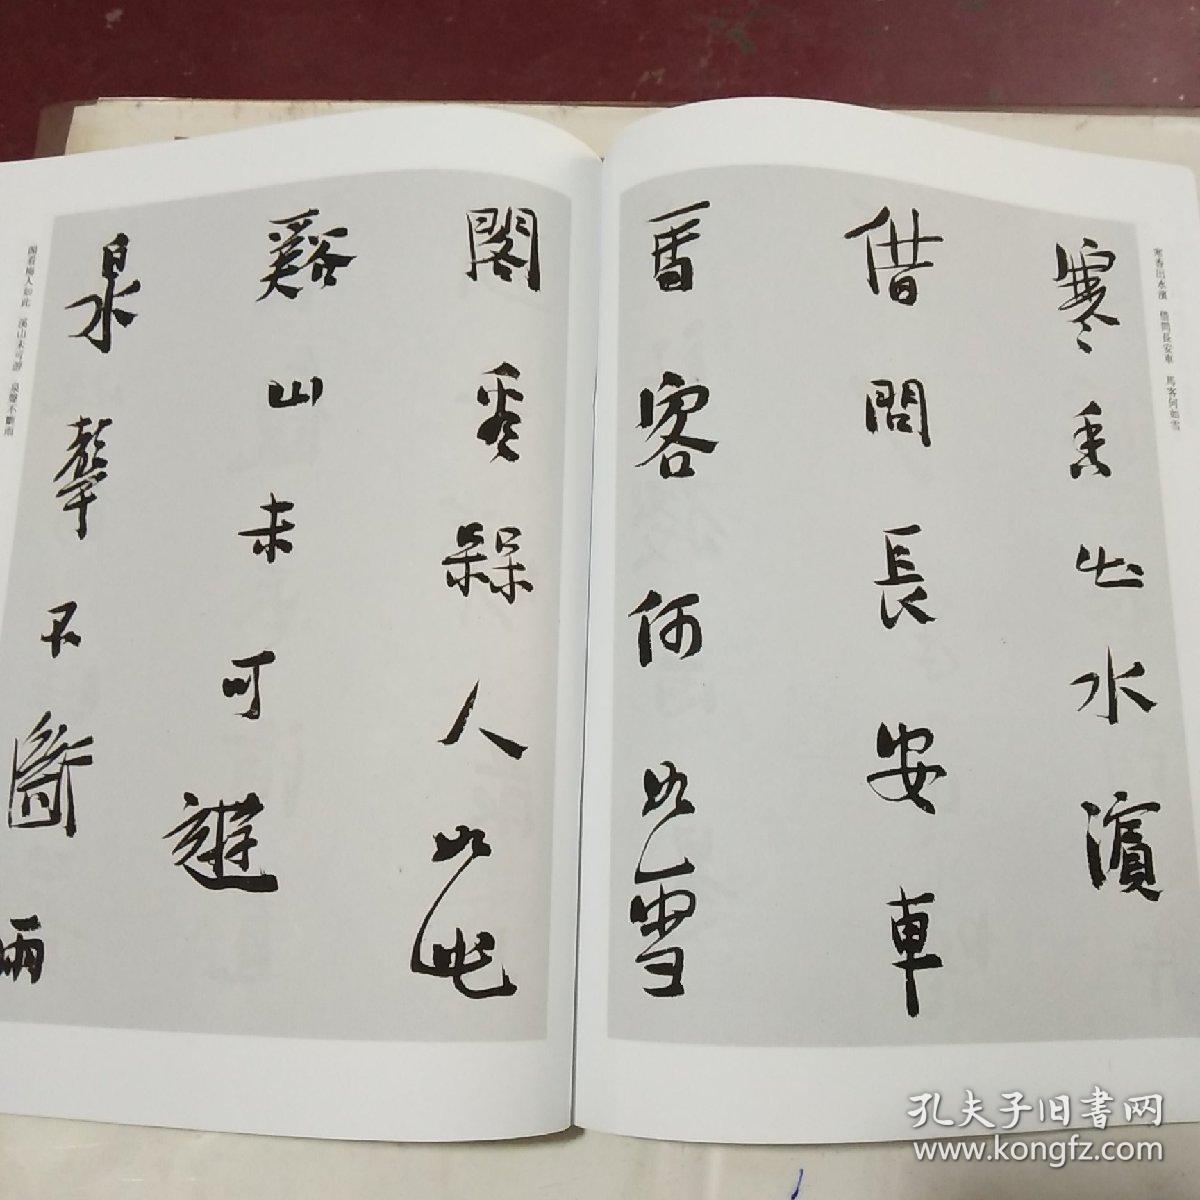 寒香出水濱　借問長安車　馬客何如雪
寒香出水濱
借問長安車
馬客何如雪
閣看槑人如此
谿山未可遊
泉聲不斷雨
閣看梅人如此　溪山未可游　泉聲不斷雨
孔夫子旧書网
www.kongfz.com